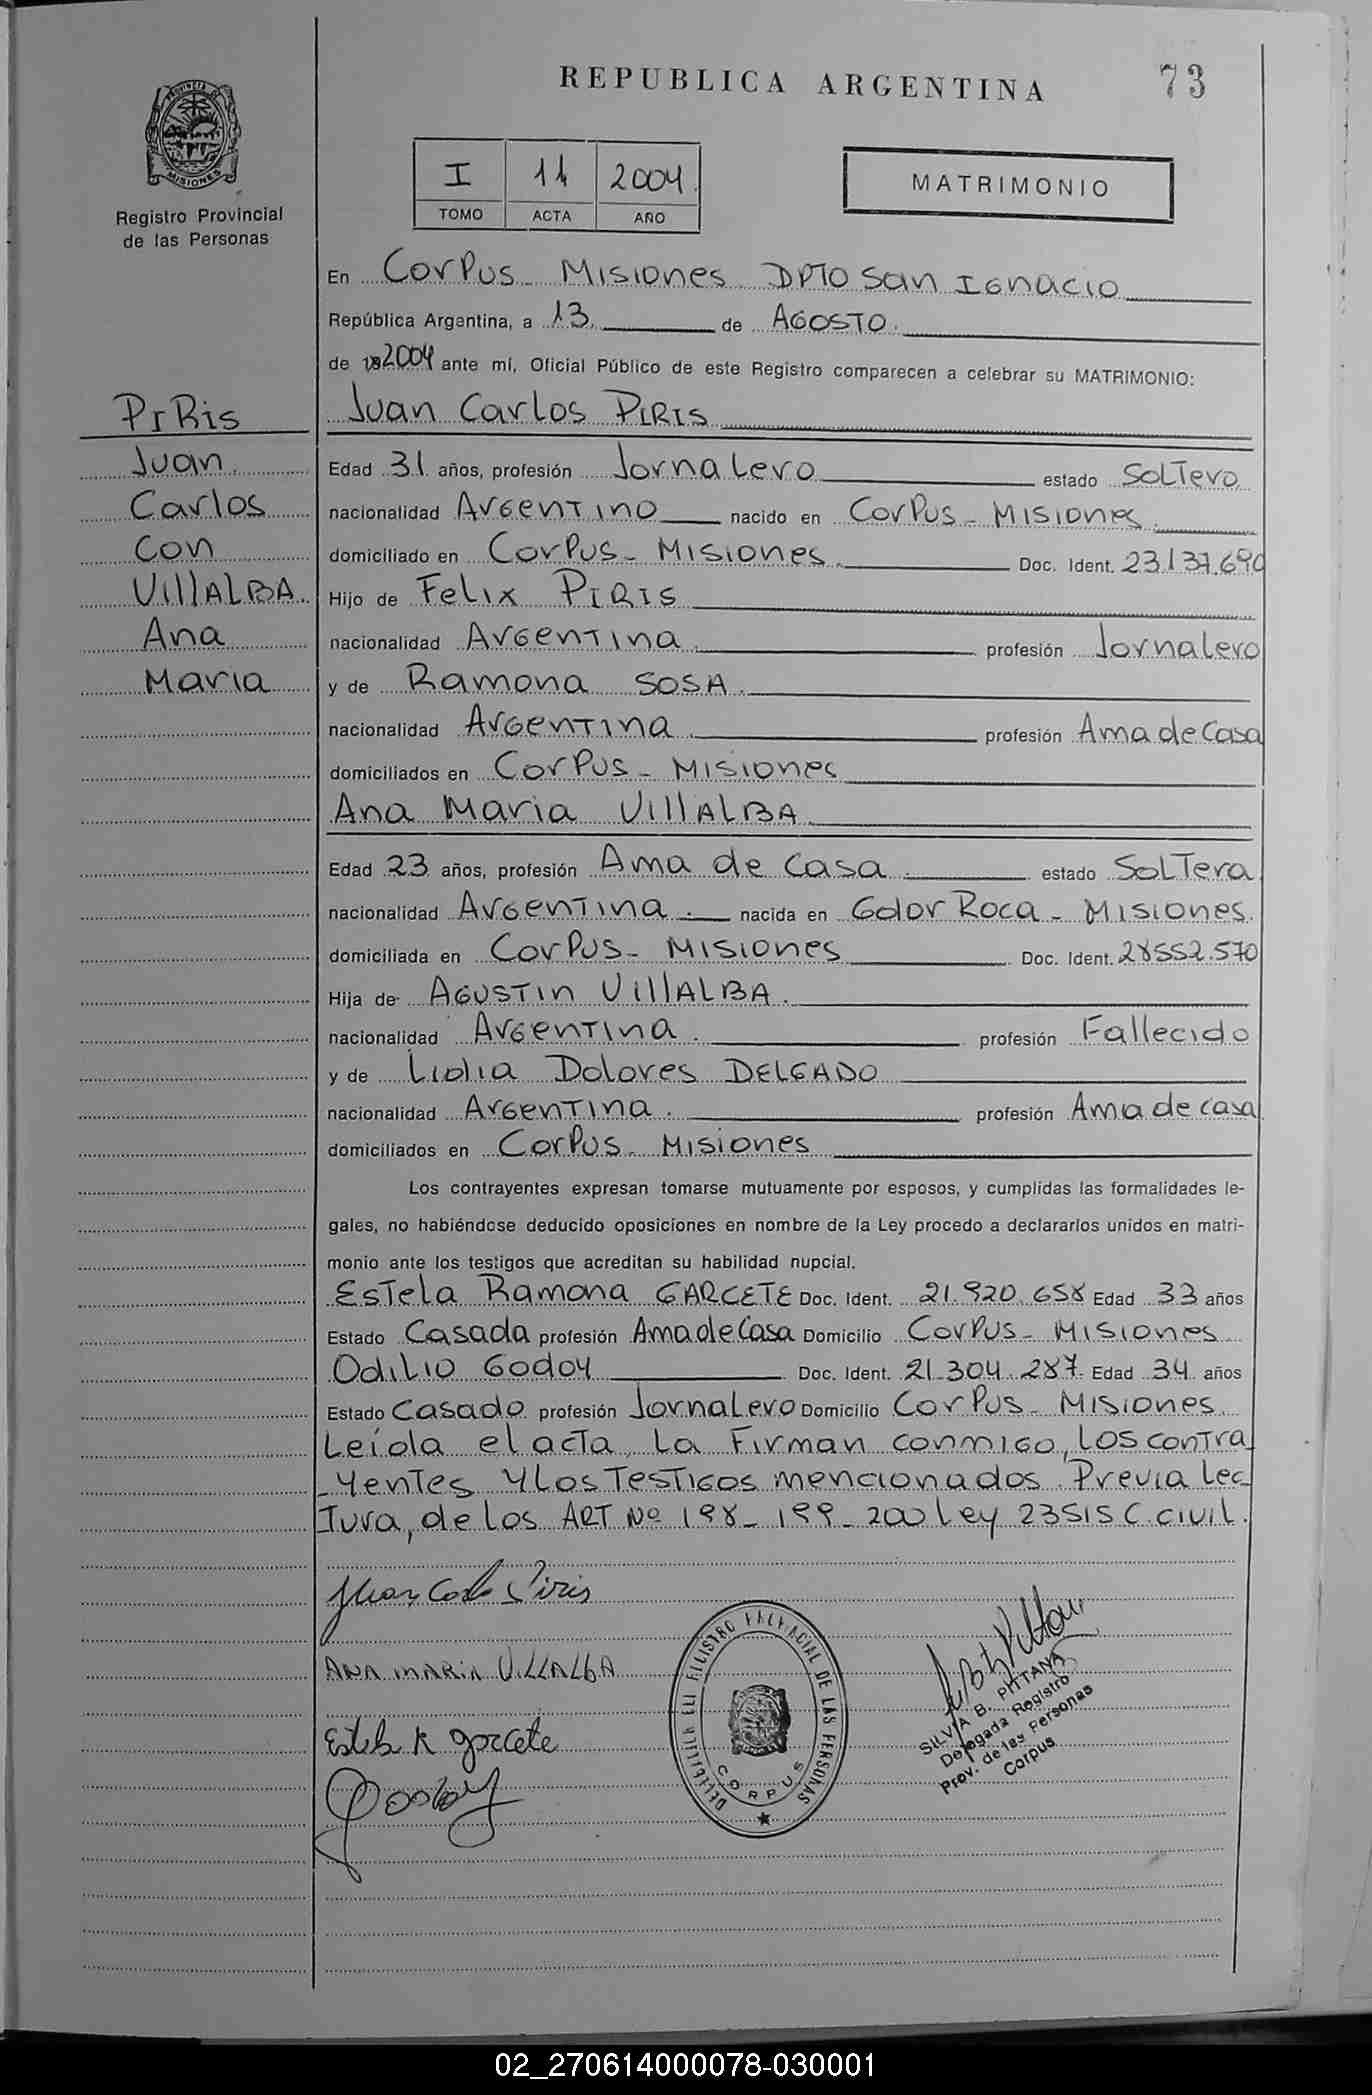 REPUBLICA ARGENTINA 73
PROVINCIA DE
MISIONES
Registro Provincial
de las Personas
I 14 2004
TOMO ACTA AÑO
MATRIMONIO
En Corpus - Misiones DPTO San Ignacio
República Argentina, a 13 de Agosto.
de 2004 ante mí, Oficial Público de este Registro comparecen a celebrar su MATRIMONIO:
Piris
Juan
Carlos
Con
Villalba
Ana
Maria
Juan Carlos PIRIS
Edad 31 años, profesión Jornalero estado Soltero
nacionalidad Argentino nacido en Corpus - Misiones
domiciliado en Corpus - Misiones Doc. Ident. 23.137.690
Hijo de Felix PIRIS
nacionalidad Argentina profesión Jornalero
y de Ramona SOSA
nacionalidad Argentina profesión Ama de Casa
domiciliados en Corpus - Misiones
Ana Maria VillALBA
Edad 23 años, profesión Ama de Casa estado Soltera
nacionalidad Argentina nacida en Gdor Roca - Misiones
domiciliada en Corpus - Misiones Doc. Ident. 28552.570
Hija de Agustin VillALBA
nacionalidad Argentina profesión Fallecido
y de Lidia Dolores DELGADO
nacionalidad Argentina profesión Ama de casa
domiciliados en Corpus - Misiones
Los contrayentes expresan tomarse mutuamente por esposos, y cumplidas las formalidades le-
gales, no habiéndose deducido oposiciones en nombre de la Ley procedo a declararlos unidos en matri-
monio ante los testigos que acreditan su habilidad nupcial.
Estela Ramona GARCETE Doc. Ident. 21.920.658 Edad 33 años
Estado Casada profesión Ama de Casa Domicilio Corpus - Misiones
Odilio Godoy Doc. Ident. 21.304.287 Edad 34 años
Estado Casado profesión Jornalero Domicilio Corpus - Misiones
Leida el acta, la Firman conmigo, los contra
yentes y los Testigos mencionados. Previa lec
tura, de los ART Nº 198 - 199 - 200 Ley 23515 C. civil.
Juan Carlos Piris
ANA MARIA VILLALBA
Estela R garcete
Godoy
PROVINCIAL DE LAS PERSONAS
CORPUS
SILVIA B. PITTANA
Delegada Registro
Prov. de las Personas
Corpus
02_270614000078-030001